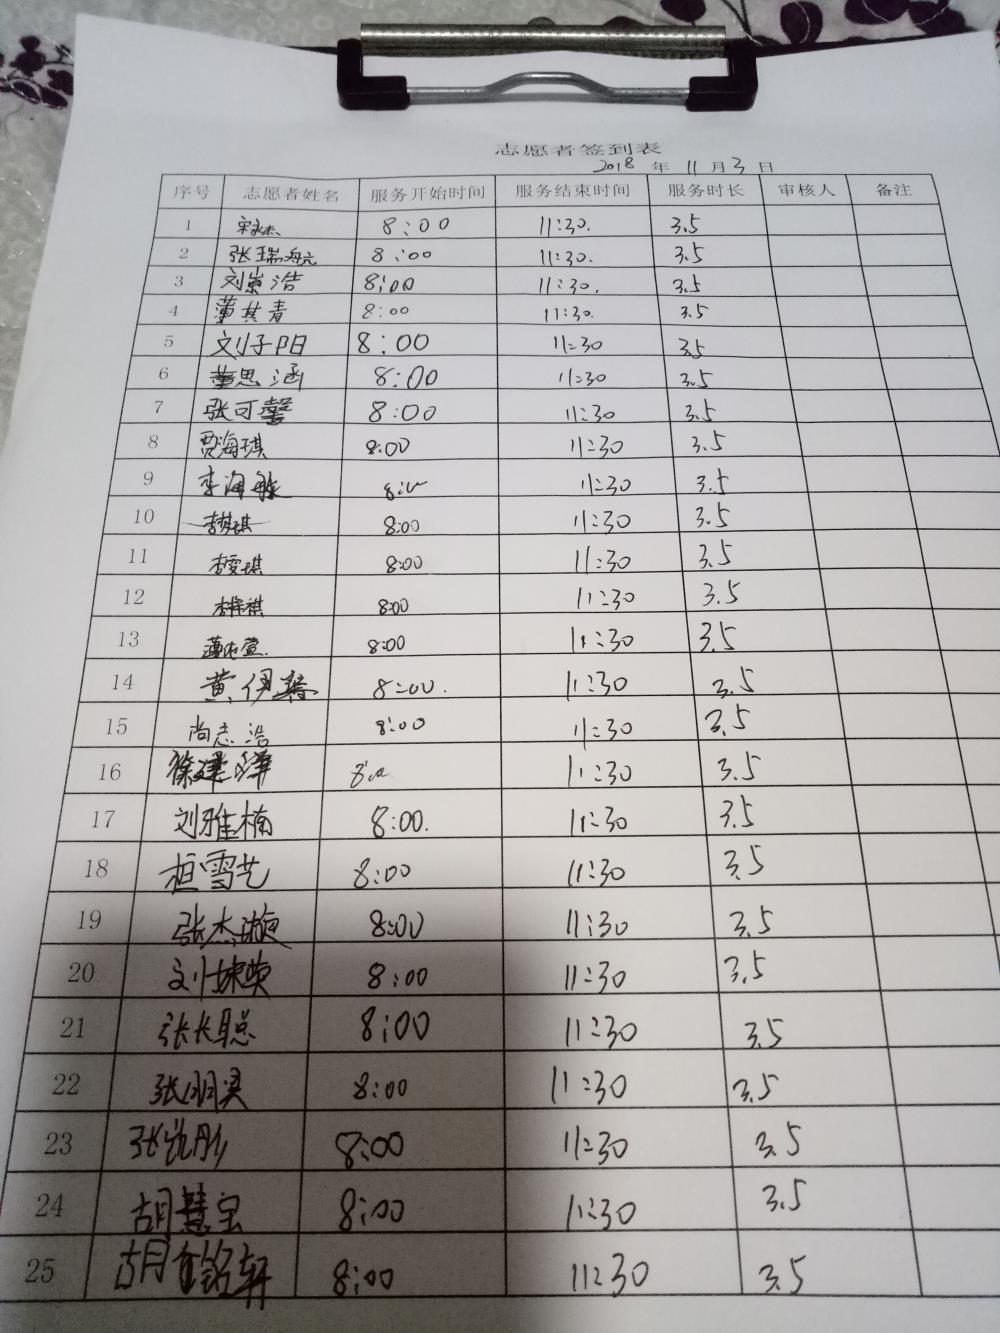 志愿者签到表
2018 年 11 月 3 日
序号 志愿者姓名 服务开始时间 服务结束时间 服务时长 审核人 备注
1 8:00 11:30. 3.5
2 张瑞航 8:00 11:30. 3.5
3 刘崇浩 8:00 11:30. 3.5
4 董其青 8:00 11:30. 3.5
5 刘子阳 8:00 11:30 3.5
6 董思涵 8:00 11:30 3.5
7 张可馨 8:00 11:30 3.5
8 贾海琪 8:00 11:30 3.5
9 李海敏 8:00 11:30 3.5
10 李梦琪 8:00 11:30 3.5
11 李雯琪 8:00 11:30 3.5
12 8:00 11:30 3.5
13 8:00 11:30 3.5
14 黄伊 8:00. 11:30 3.5
15 尚志浩 8:00 11:30 3.5
16 徐建 8:00 11:30 3.5
17 刘雅楠 8:00. 11:30 3.5
18 桓雪艺 8:00 11:30 3.5
19 张杰璇 8:00 11:30 3.5
20 刘 8:00 11:30 3.5
21 张长聪 8:00 11:30 3.5
22 张明昊 8:00 11:30 3.5
23 张悦彤 8:00 11:30 3.5
24 胡慧宝 8:00 11:30 3.5
25 胡铭轩 8:00 11:30 3.5